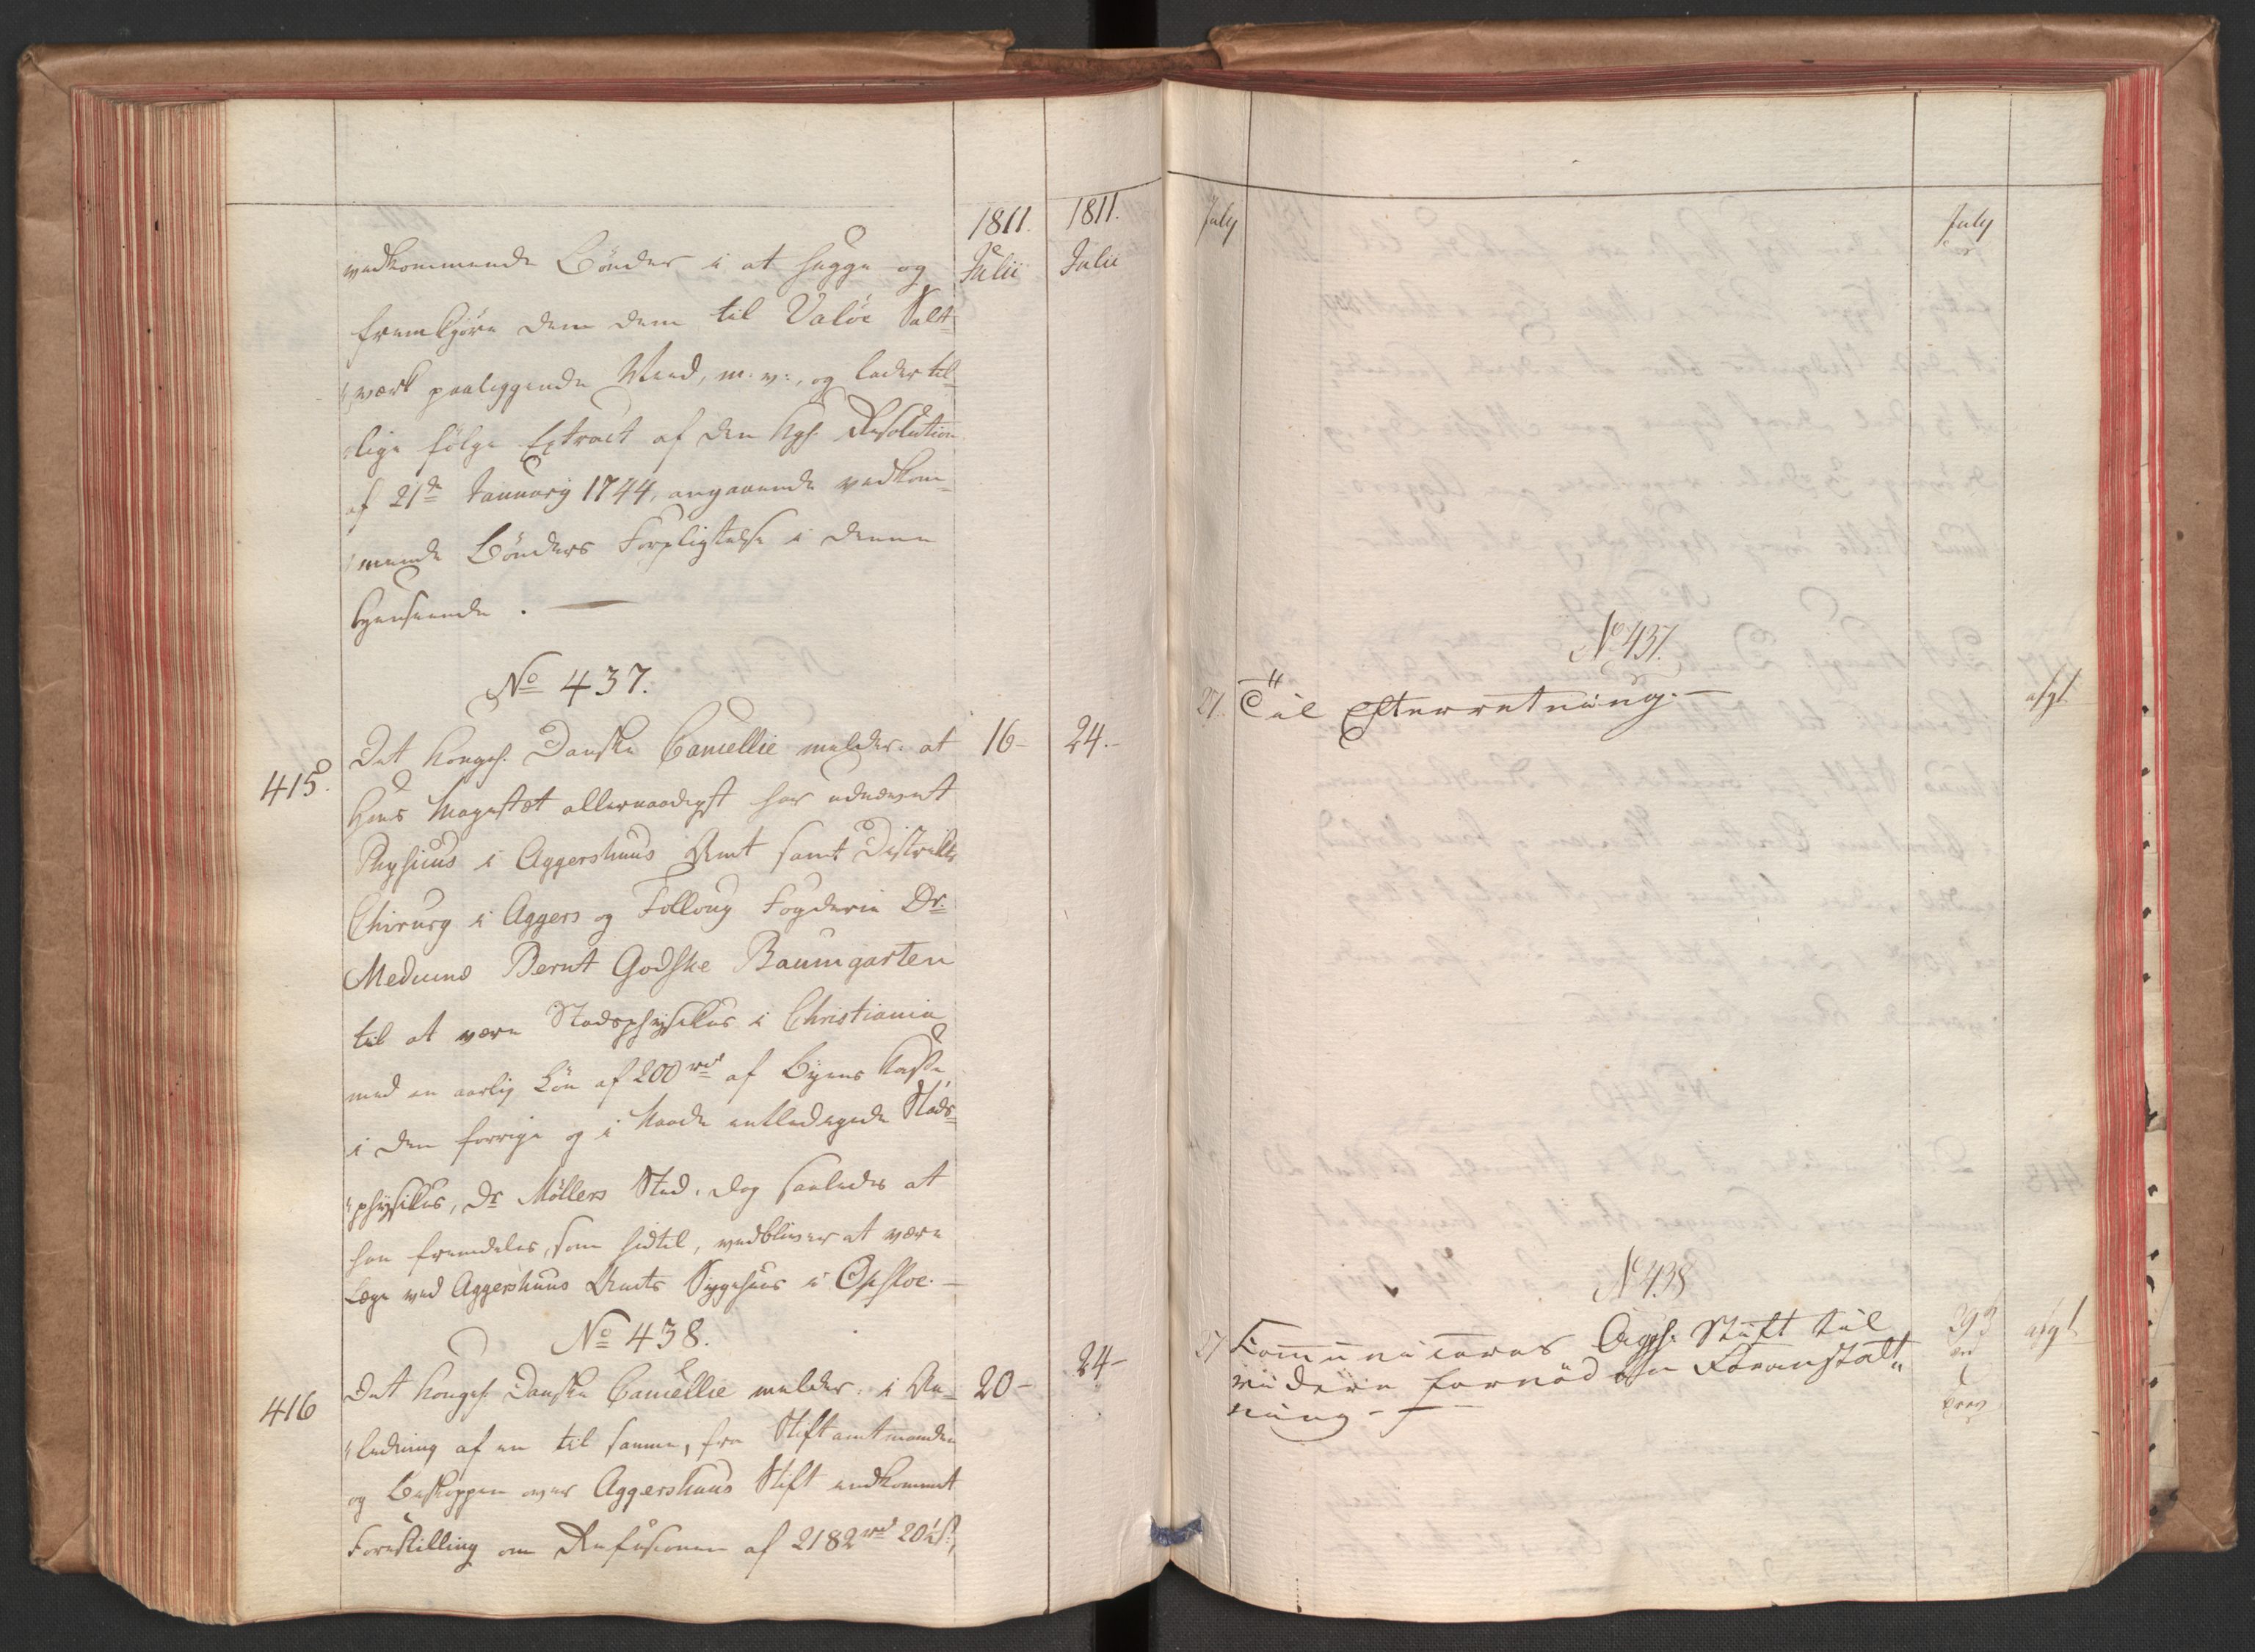 1811.
Julii
1811.
Julii
vedkommende Bönder i at hugge og
fremkjöre dem dem til Valöe Salt-
værk paaliggende Weed, m. v:, og lader til-
lige fölge Extract af den Kgl. Resolution
af 21de January 1744, angaaende vedkom-
mende Bönders Forpligtelse i denne
Henseende. —
No 437.
415.
Det Kongel. Danske Cancellie melder: at
16-
24.-
Hans Majestæt allernaadigst har udnævnt
Physicus i Aggershuus Amt samt Distrikts
Chirurg i Aggers og Folloug Fogderie Dr.
Medicinæ Bernt Godske Baumgarten
til at være Stadsphysikus i Christiania
med en aarlig Lön af 200 rd af Byens Kasse
i den forrige og i Naade entledigede Stads-
physikus, Dr Möllers Sted, dog saaledes at
han fremdeles, som hidtil, vedbliver at være
Læge ved Aggershuus Amts Sygehuus i Opsloe. —
No 438.
416
Det Kongel. Danske Cancellie melder: i An-
20-
24-
ledning af en til samme, fra Stiftamtmanden
og Biskoppen over Aggershuus Stift indkommet
Forestilling om Refusionen af 2182 rd 20 s.,
July
July
No 437.
27.
Til Efterretning. —
afgl.
No 438
27
Communiceres Aggh. Stift til
293
afgl.
videre fornöden Foranstalt-
ning. —